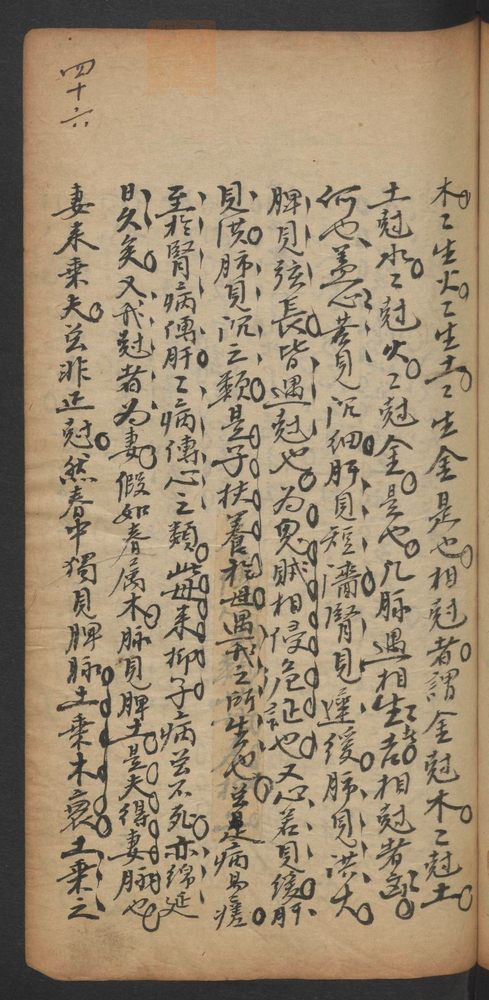 木〻生火〻生土〻生金是也相尅者謂金尅木〻尅土
土尅水〻尅火〻尅金是也凡脉遇相生者吉相尅者凶
何也盖心若見沉細肝見短濇腎見遲緩肺見洪大
脾見弦長皆遇尅也为鬼賊相侵危証也又心若見緩肝
見洪肺見沉之類是子扶養於母遇我之所生也並是病易瘥
至於腎病傳肝〻病傳心之類此母来抑子病並不死亦綿延
日久矣又我尅者为妻假如春属木脉見脾土是夫得妻脉也
妻来乗夫並非正尅然春中獨見脾脉土乗木衰土乗之
四十六